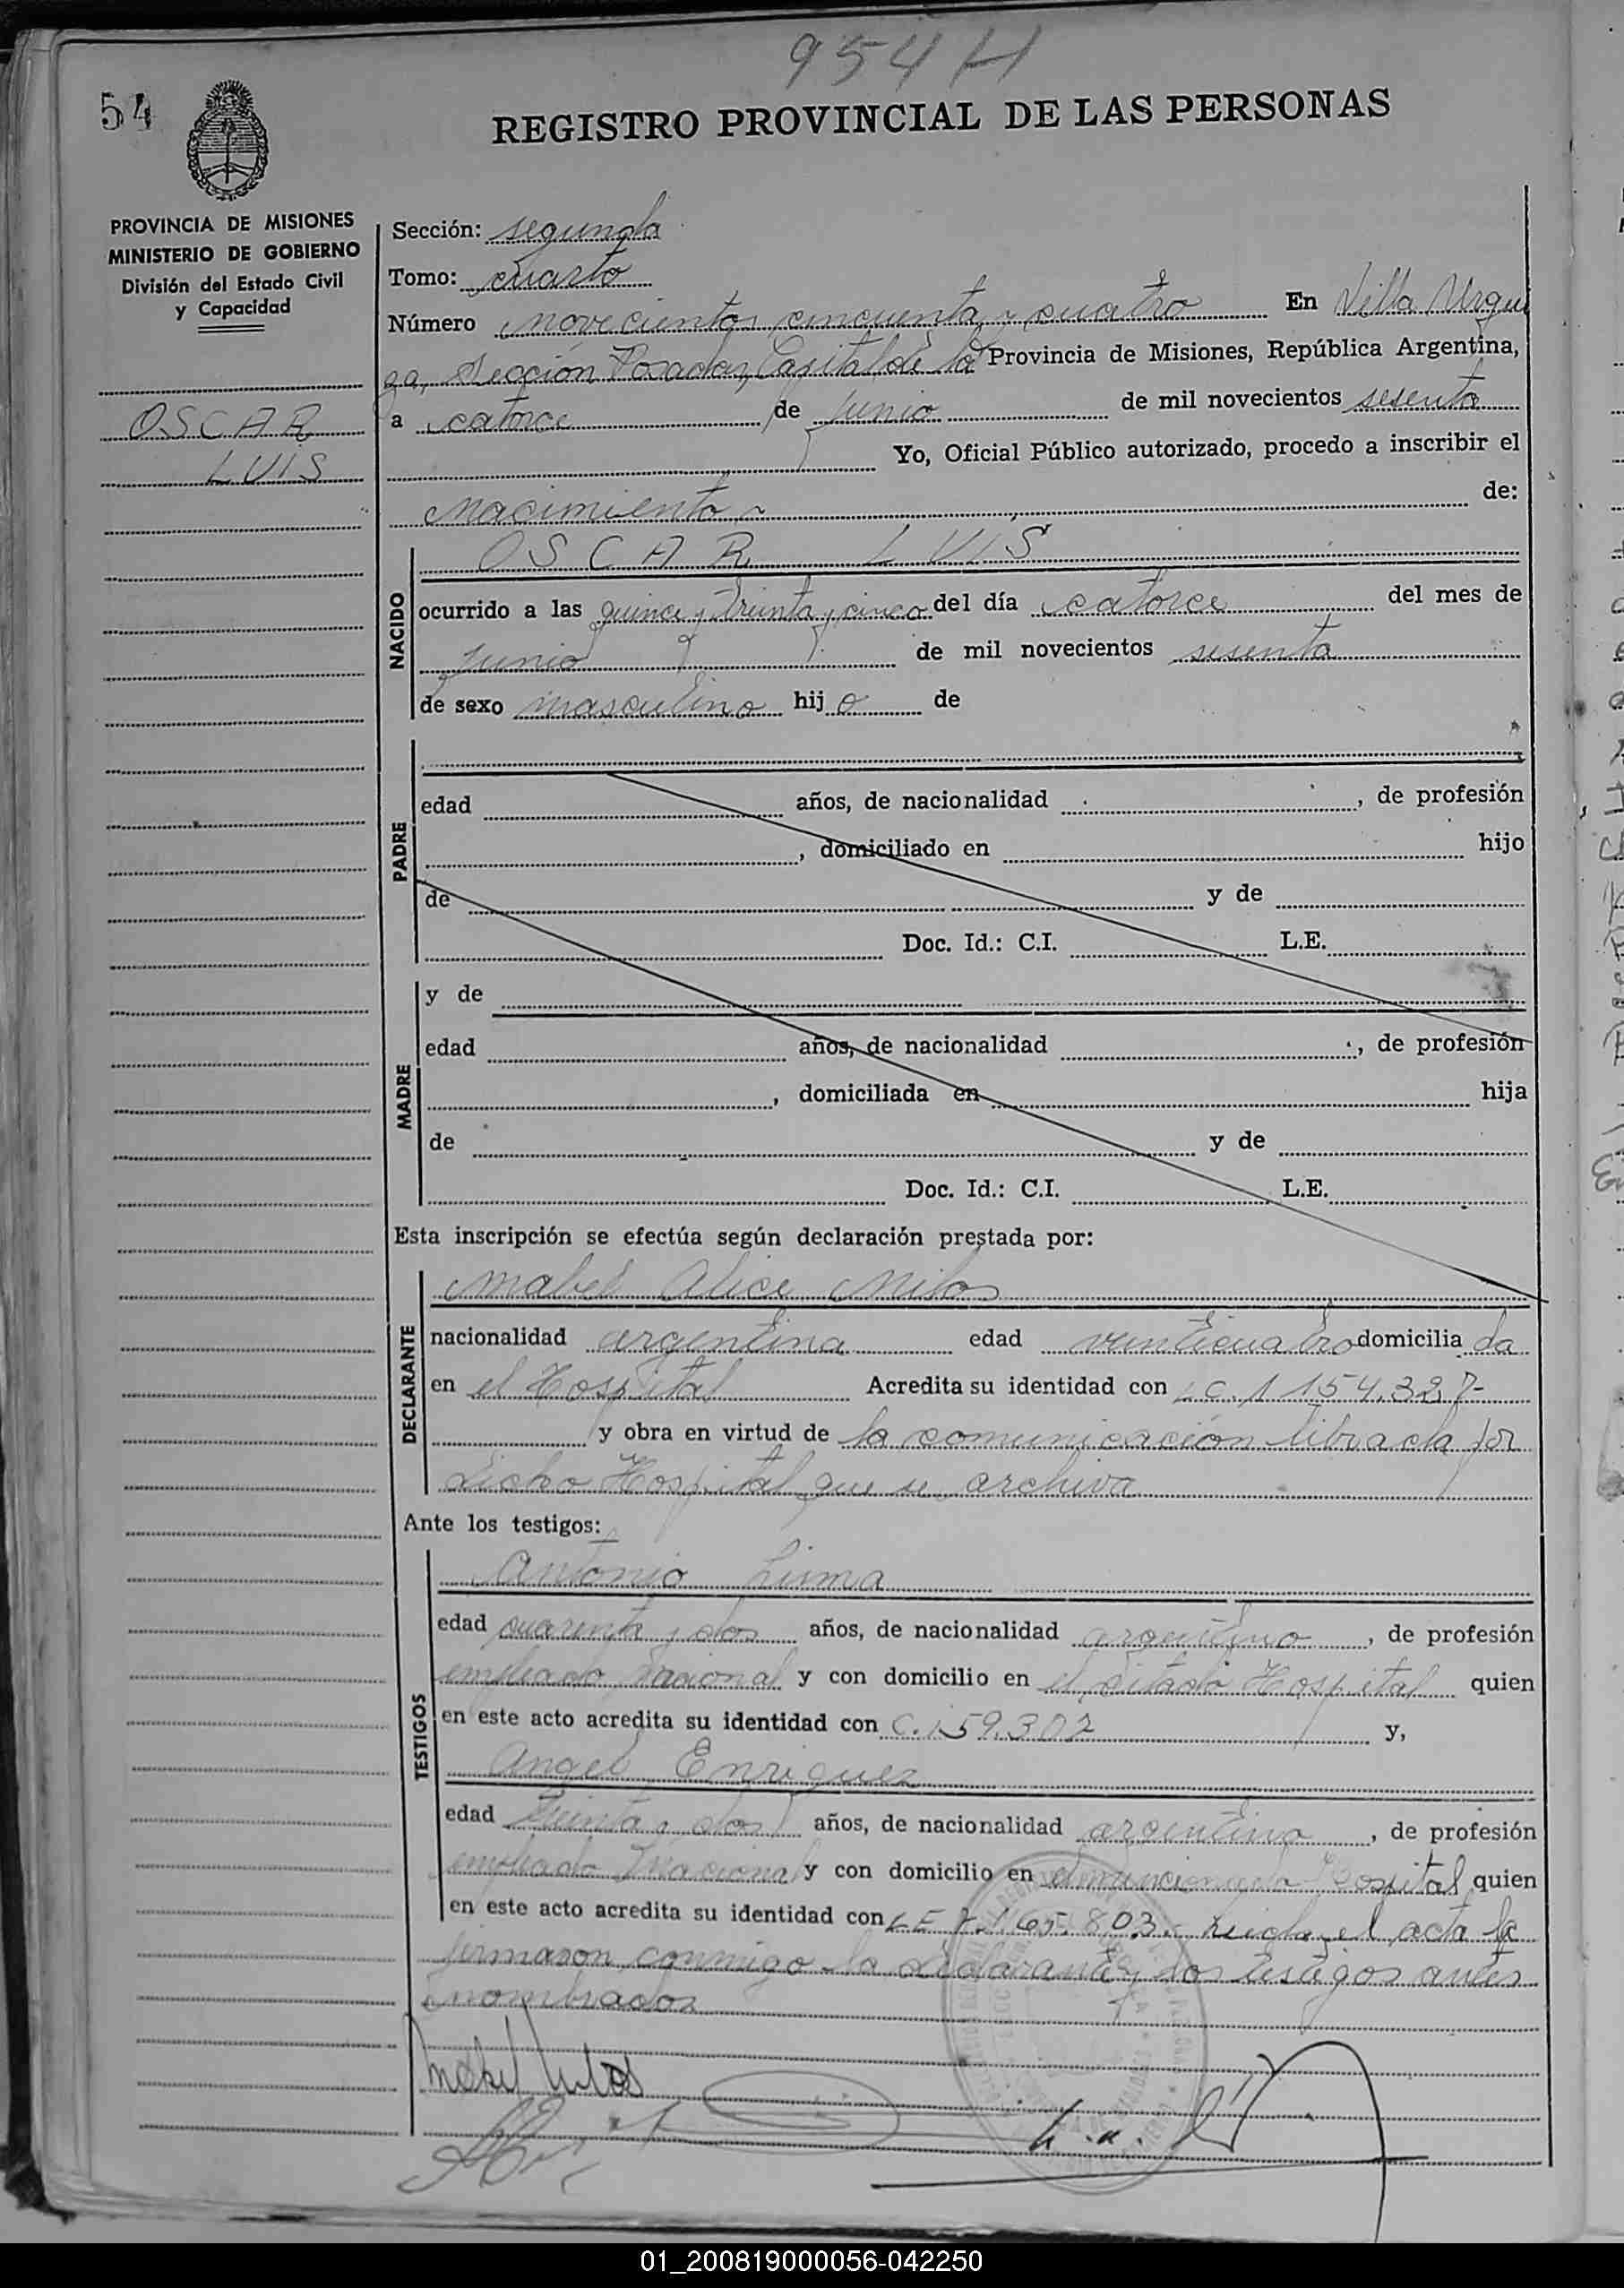 954 H
54
REGISTRO PROVINCIAL DE LAS PERSONAS
PROVINCIA DE MISIONES
MINISTERIO DE GOBIERNO
División del Estado Civil
y Capacidad
OSCAR
LUIS
Sección: segunda
Tomo: cuarto
Número novecientos cincuenta y cuatro En Villa Urqui
za, Sección Posadas, Capital de la Provincia de Misiones, República Argentina,
a catorce de junio de mil novecientos sesenta
Yo, Oficial Público autorizado, procedo a inscribir el
nacimiento de:
NACIDO
OSCAR LUIS
ocurrido a las quince y treinta y cinco del día catorce del mes de
junio de mil novecientos sesenta
de sexo masculino hijo de
PADRE
edad años, de nacionalidad , de profesión
, domiciliado en hijo
de y de
Doc. Id.: C.I. L.E.
MADRE
y de
edad años, de nacionalidad , de profesión
, domiciliada en hija
de y de
Doc. Id.: C.I. L.E.
Esta inscripción se efectúa según declaración prestada por:
DECLARANTE
Mabel Alice Milos
nacionalidad argentina edad veinticuatro domiciliada
en el Hospital Acredita su identidad con L.C. 1.154.327-
y obra en virtud de la comunicación librada por
dicho Hospital que se archiva
Ante los testigos:
TESTIGOS
Antonio Lima
edad cuarenta y dos años, de nacionalidad argentino, de profesión
empleado nacional y con domicilio en el citado Hospital quien
en este acto acredita su identidad con C.I. 59.302 y,
Angel Enriquez
edad treinta y dos años, de nacionalidad argentino, de profesión
empleado Nacional y con domicilio en el mencionado Hospital quien
en este acto acredita su identidad con L E 7.165.803. Leida el acta la
firmaron conmigo la declarante y los testigos antes
nombrados
Mabel Milos
01_200819000056-042250